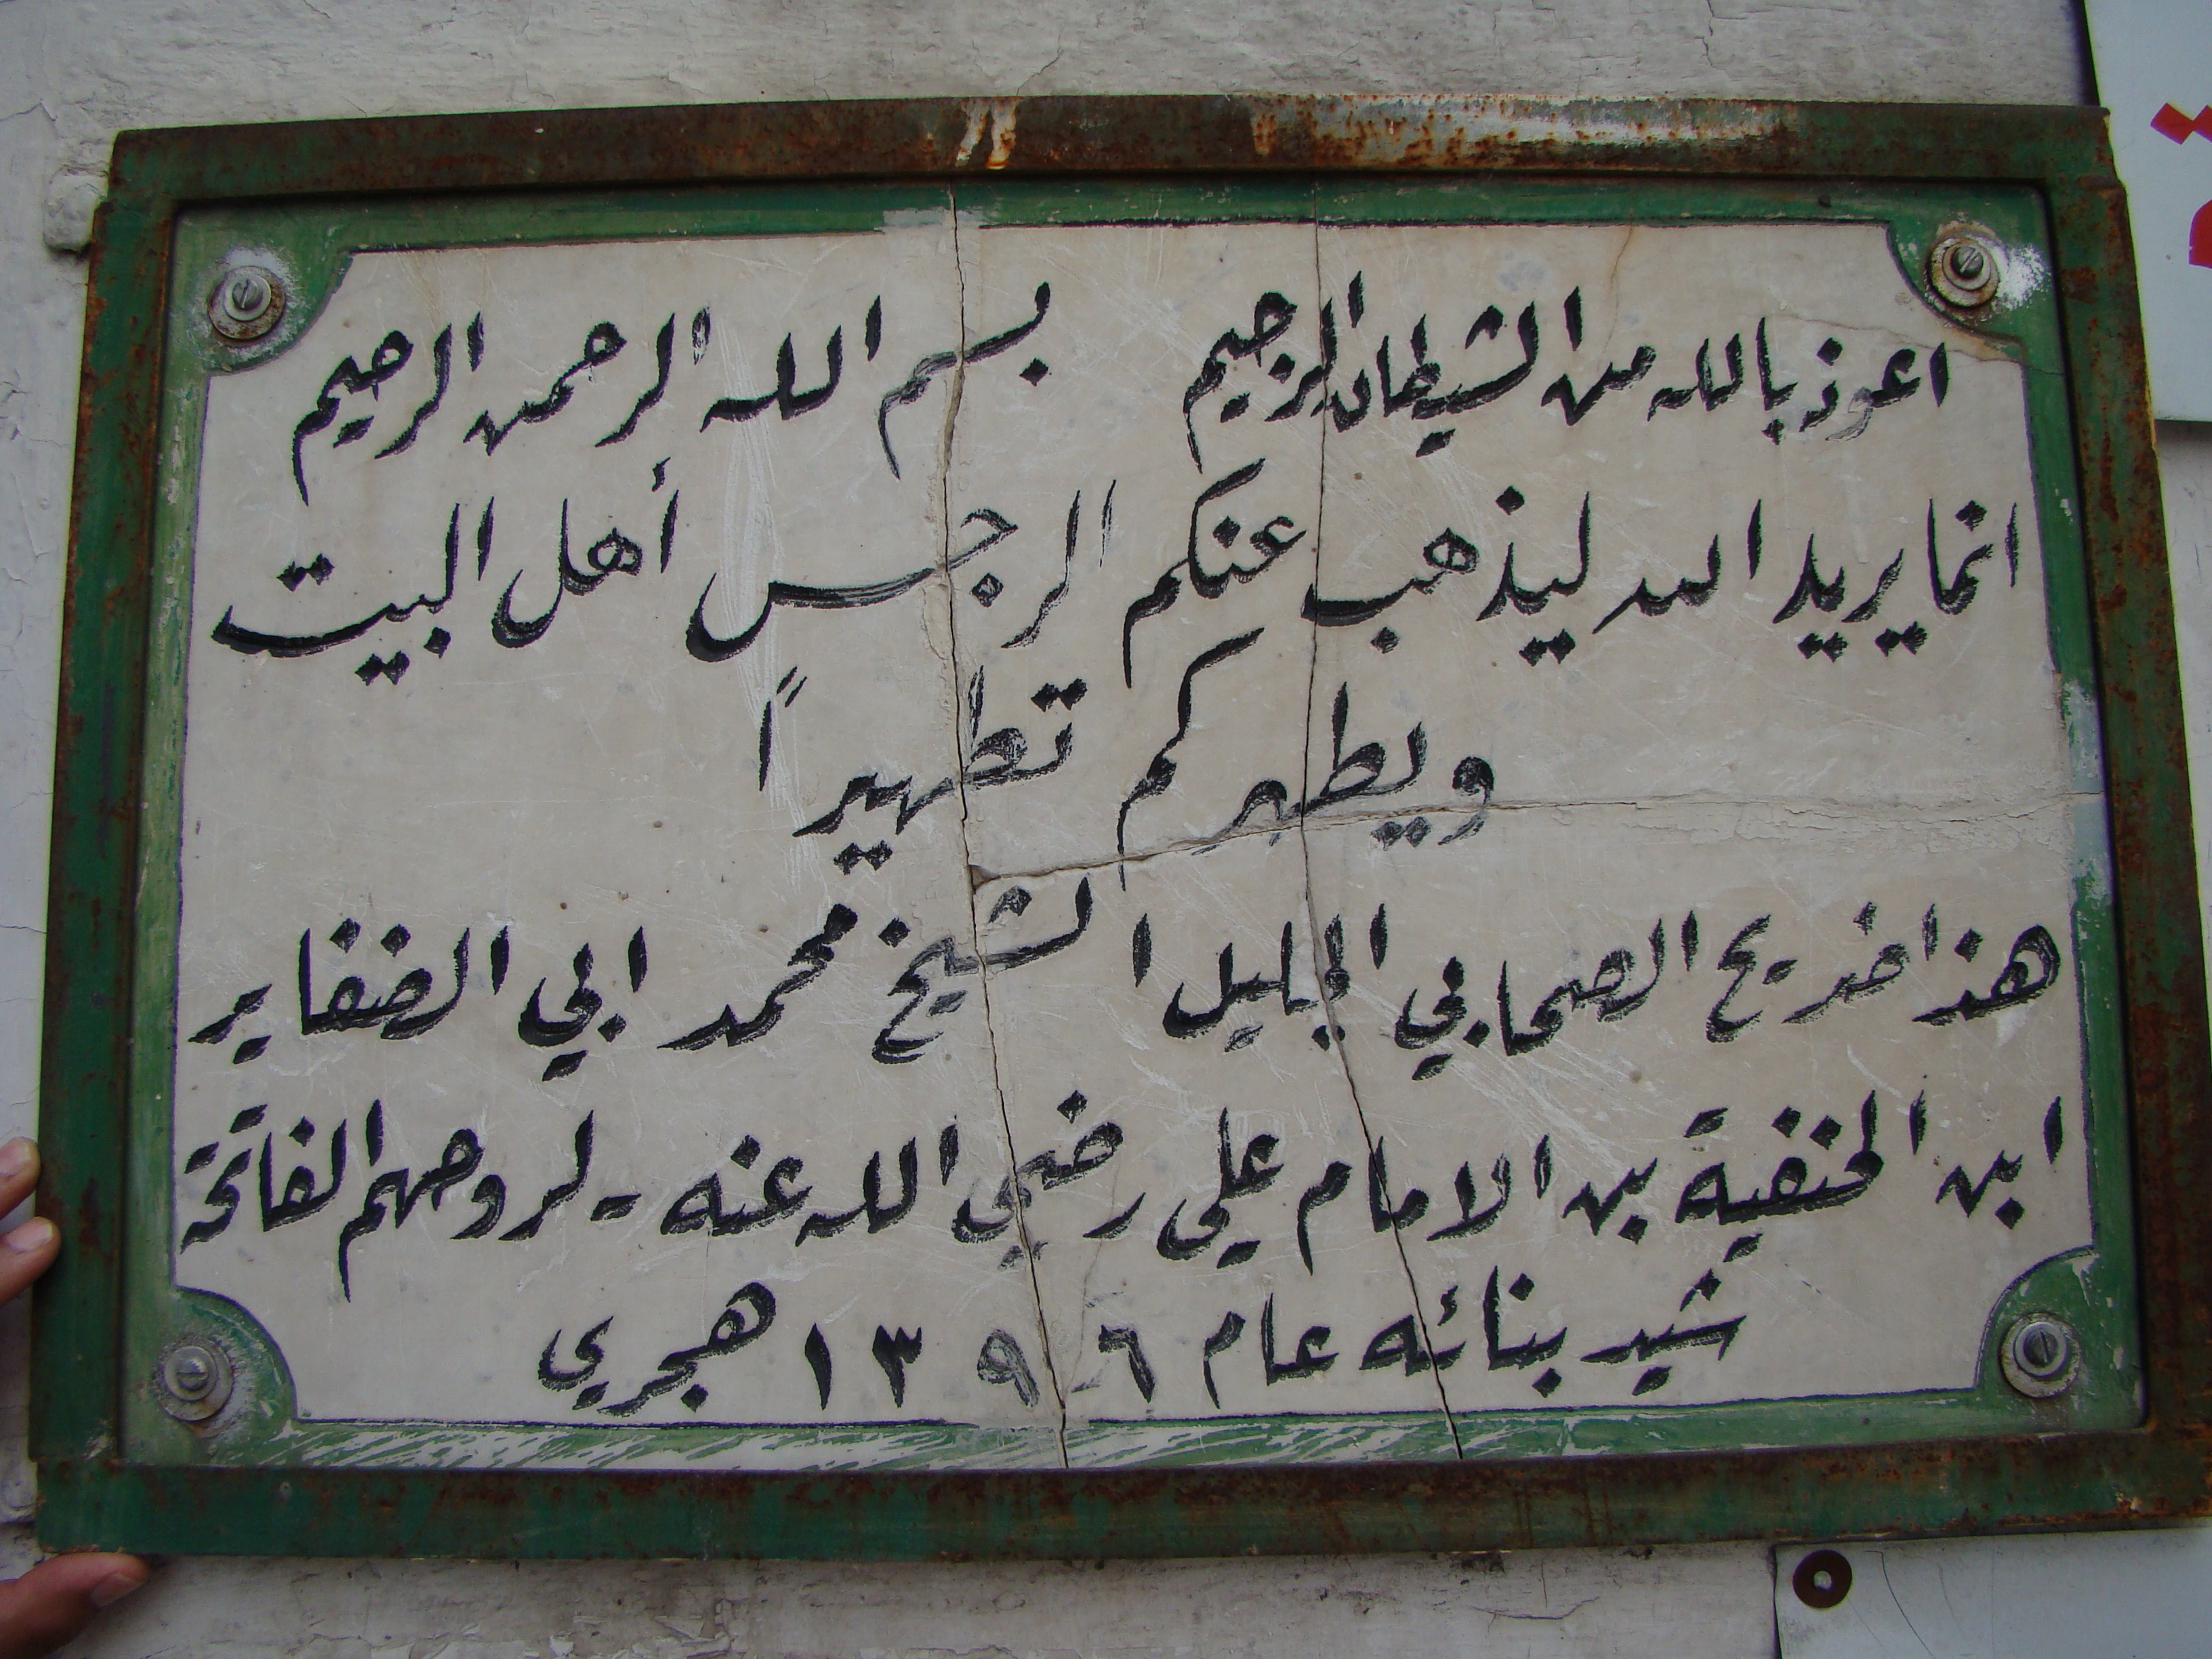 اعوذ بالله من الشيطان الرجيم بسم الله الرحمن الرحيم
انما يريد الله ليذهب عنكم الرجس أهل البيت
ويطهركم تطهيراً
هذا ضريح الصحابي الجليل الشيخ محمد ابي الضفاير
ابن الحنفية بن الامام علي رضي الله عنه - لروحهم الفاتحة
شيد بنائه عام ١٣٩٦ هجري